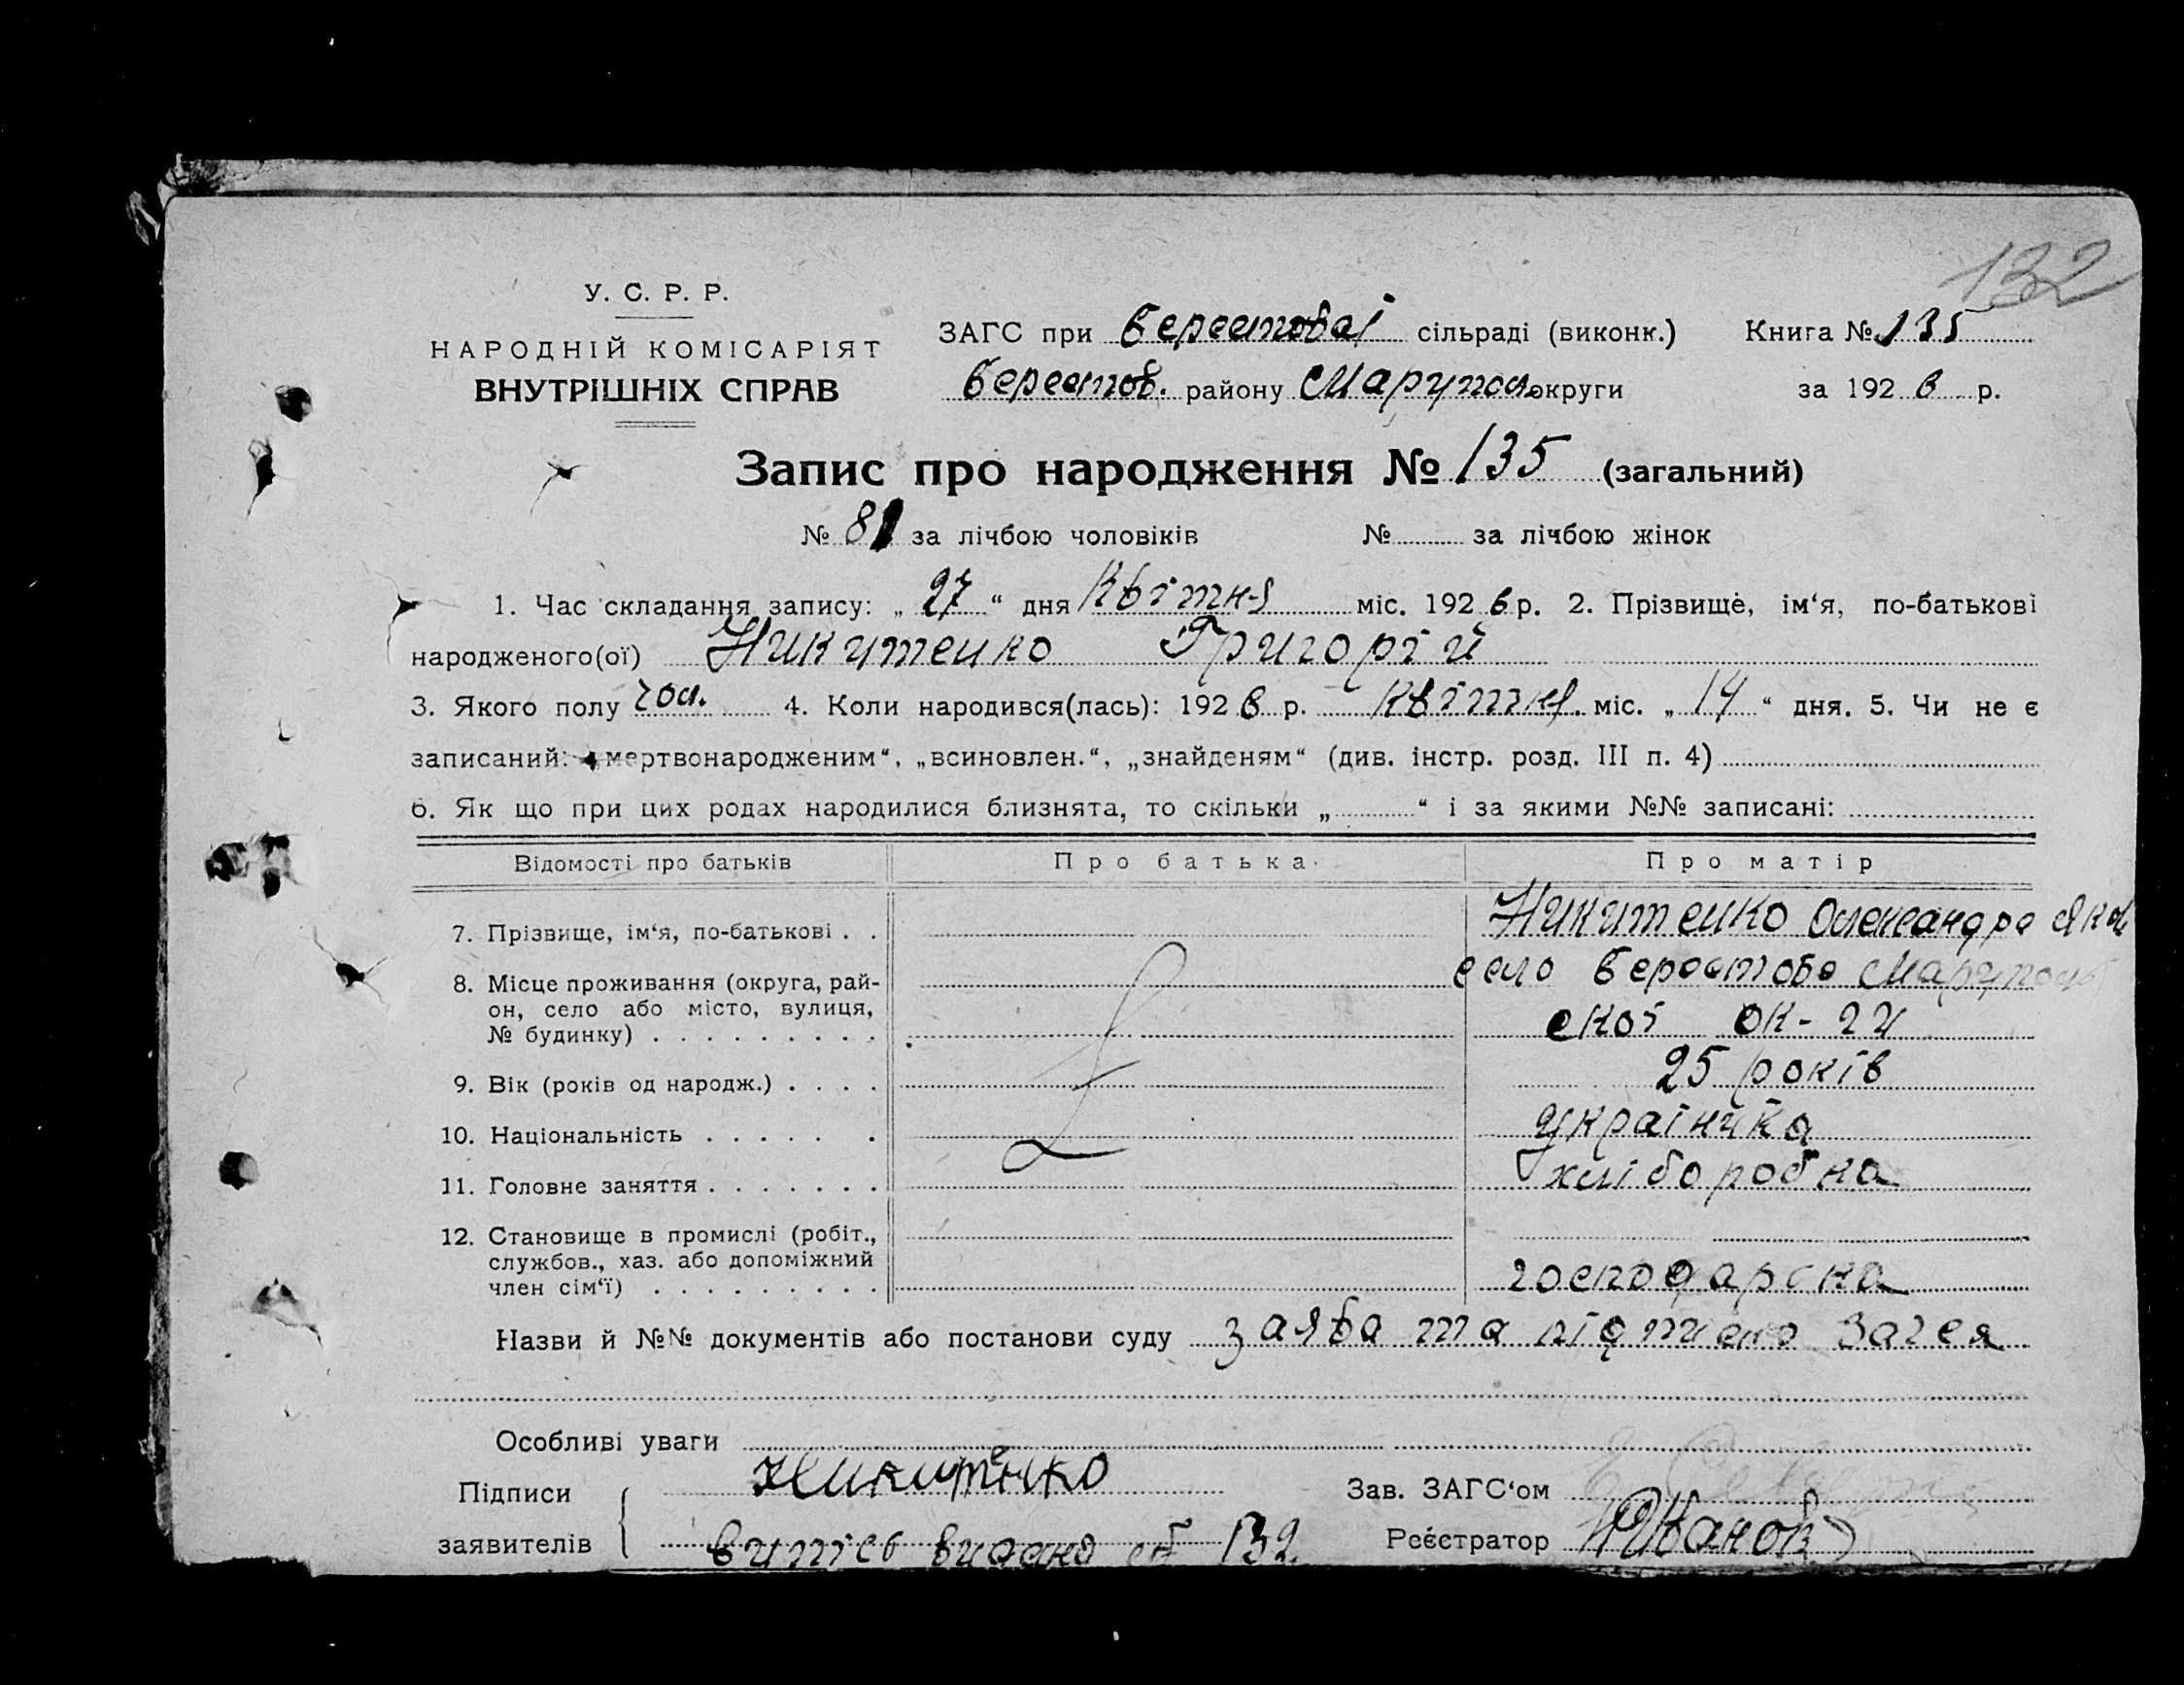 132
У. С. Р. Р.
НАРОДНІЙ КОМІСАРІЯТ
ВНУТРІШНІХ СПРАВ
ЗАГС при Берестовві сільраді (виконк.) Книга № 135
Берестов. району Марупол. округи за 1926 р.
Запис про народження № 135 (загальний)
№ 81 за лічбою чоловіків № за лічбою жінок
1. Час складання запису: „27“ дня Квітня міс. 1926 р. 2. Прізвище, ім‘я, по-батькові
народженого(ої) Никитенко Григорій
3. Якого полу чол. 4. Коли народився(лась): 1926 р. Квітня міс. „14“ дня. 5. Чи не є
записаний: „мертвонародженим“, „всиновлен.“, „знайденям“ (див. інстр. розд. III п. 4)
6. Як що при цих родах народилися близнята, то скільки „ “ і за якими №№ записані:
Відомості про батьків Про батька Про матір
7. Прізвище, ім‘я, по-батькові . . Никитенко Олександра Яков
8. Місце проживання (округа, рай- село Берестово Мариполь
он, село або місто, вулиця,
№ будинку) . . . . . . . . . ської ок-ги
9. Вік (років од народж.) . . . . 25 років
10. Національність . . . . . . українка
11. Головне заняття . . . . . . . хліборобка
12. Становище в промислі (робіт.,
службов., хаз. або допоміжний
член сім‘ї) . . . . . . . . . господарска
Назви й №№ документів або постанови суду заява та Загса
Особливі уваги
Підписи Никитенко Зав. ЗАГС‘ом
заявителів витяг видано 132 Реєстратор Иванов